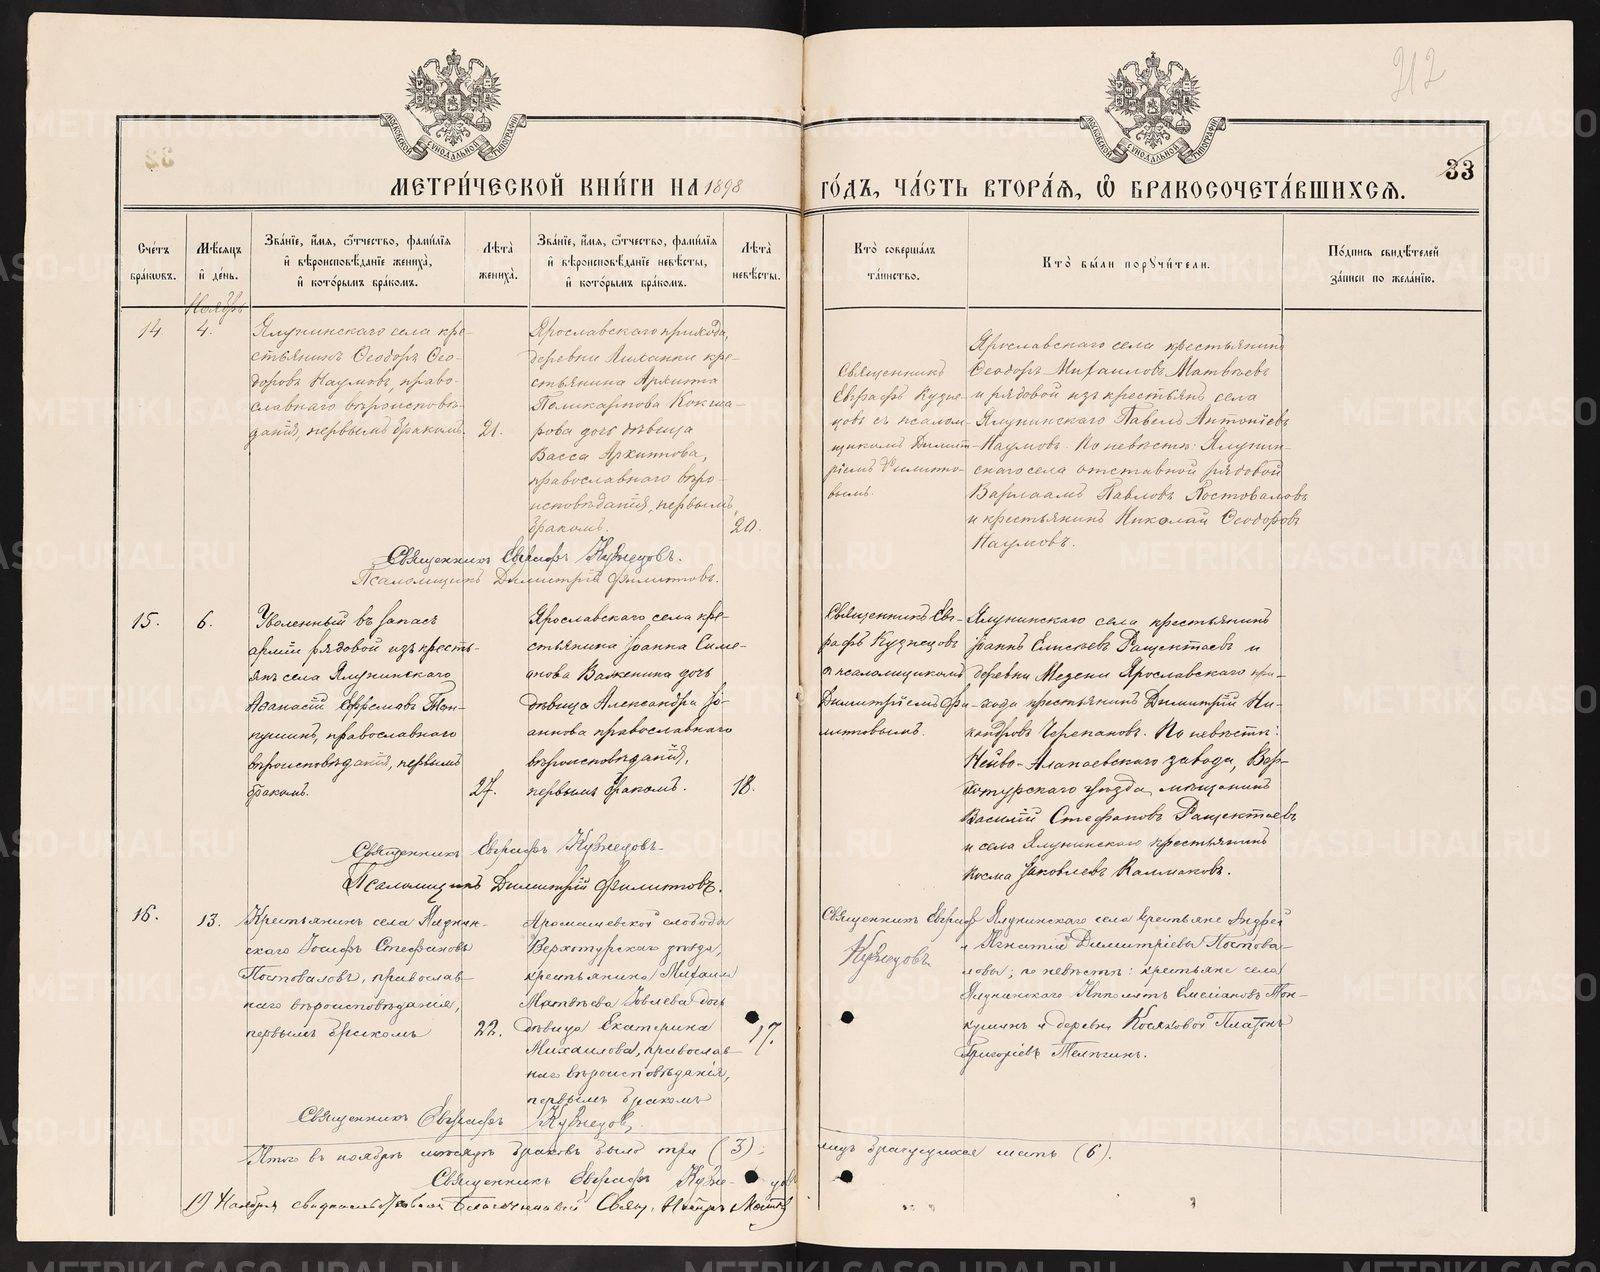 212
33
МЕТРИ́ЧЕСКОЙ КНИ́ГИ НА 1898
ГО́ДЪ, ЧА́СТЬ ВТОРА́Ѧ, Ѽ БРАКОСОЧЕТА́ВШИХСѦ.
Сче́тъ бра́кѡвъ.
Мѣ́сѧцъ и҆ де́нь.
Зва́нїе, и҆́мѧ, ѻ҆́тчество, фами́лїѧ
и҆ вѣроисповѣ́данїе жениха̀,
и҆ кото́рымъ бра́комъ.
Лѣ́та жениха̀.
Зва́нїе, и҆́мѧ, ѻ҆́тчество, фами́лїѧ
и҆ вѣроисповѣ́данїе невѣ́сты,
и҆ кото́рымъ бра́комъ.
Лѣ́та невѣ́сты.
Кто̀ соверша́лъ та́инство.
Кто̀ бы́ли порꙋчи́тели.
По́дпись свидѣ́телей за́писи по жела́нїю.
Ноябрь
14.
4.
Ялунинскаго села кре-
стьянинъ Ѳеодоръ Ѳео-
доровъ Наумовъ, право-
славнаго вѣроисповѣ-
данія, первымъ бракомъ.
21.
Ярославскаго прихода,
деревни
кре-
стьянина Архиппа
Поликарпова Кокша-
рова дочь дѣвица
Васса Архиппова,
православнаго вѣро-
исповѣданія, первымъ
бракомъ.
20.
Священникъ
Евграфъ Кузне-
цовъ съ псалом-
щикомъ Димит-
ріемъ Филито-
вымъ.
Ярославскаго села крестьянинъ
Ѳеодоръ Михаиловъ Матвѣевъ
и рядовой изъ крестьянъ села
Ялунинскаго Павелъ Антоніевъ
Наумовъ. По невѣстѣ: Ялунин-
скаго села отставной рядовой
Варлаамъ Павловъ Постоваловъ
и крестьянинъ Николай Ѳеодоровъ
Наумовъ.
Священникъ Евграфъ Кузнецовъ.
Псаломщикъ Димитрій Филитовъ.
15.
6.
Уволенный въ запасъ
арміи рядовой изъ кресть-
янъ села Ялунинскаго
Аѳанасій Ефремовъ Тон-
кушинъ, православнаго
вѣроисповѣданія, первымъ
бракомъ.
27.
Ярославскаго села кре-
стьянина Іоанна Симе-
онова Важенина дочь
дѣвица Александра Іо-
аннова православнаго
вѣроисповѣданія,
первымъ бракомъ.
18.
Священникъ Ев-
графъ Кузнецовъ
съ псаломщикомъ
Димитріемъ Фи-
литовымъ.
Ялунинскаго села крестьянинъ
Іоаннъ Елисеевъ Ращектаевъ и
деревни Медени Ярославскаго при-
хода крестьянинъ Димитрій Ни-
кандровъ Черепановъ. По невѣстѣ:
Нейво-Алапаевскаго завода, Вер-
хотурскаго уѣзда, мѣщанинъ
Василій Стефановъ Ращектаевъ
и села Ялунинскаго крестьянинъ
Косма Іаковлевъ Калмаковъ.
Священникъ Евграфъ Кузнецовъ.
Псаломщикъ Димитрій Филитовъ.
16.
13.
Крестьянинъ села Ялунин-
скаго Іосифъ Стефановъ
Постоваловъ, православ-
наго вѣроисповѣданія,
первымъ бракомъ
22.
Арамашевской слободы
Верхотурскаго уѣзда,
крестьянина Михаила
Матвѣева Іовлева дочь
дѣвица Екатерина
Михаилова, православ-
наго вѣроисповѣданія,
первымъ бракомъ
17.
Священникъ Евграфъ
Кузнецовъ.
Ялунинскаго села крестьяне Андрей
и Игнатій Димитріевы Постова-
ловы; по невѣстѣ: крестьяне села
Ялунинскаго Ипполитъ Емеліановъ Тон-
кушинъ и деревни Косяковой Платонъ
Григоріевъ Телѣгинъ.
Священникъ Евграфъ Кузнецовъ.
Итого въ ноябрѣ мѣсяцѣ браковъ было три (3):
лицъ брачущихся шесть (6).
Священникъ Евграфъ Кузнецовъ
19 Ноября свидѣтельствовалъ Благочинный Свящ. Петръ
METRIKI.GASO-URAL.RU